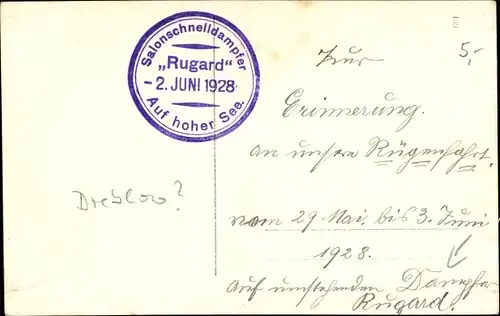 Salonschnelldampfer
„Rugard“
- 2. JUNI 1928
Auf hoher See.
5,-
Zur
Erinnerung.
an unsere Rügenfahrt.
vom 29 Mai. bis 3. Juni
1928.
Auf umstehenden Dampfer
Rugard.
?